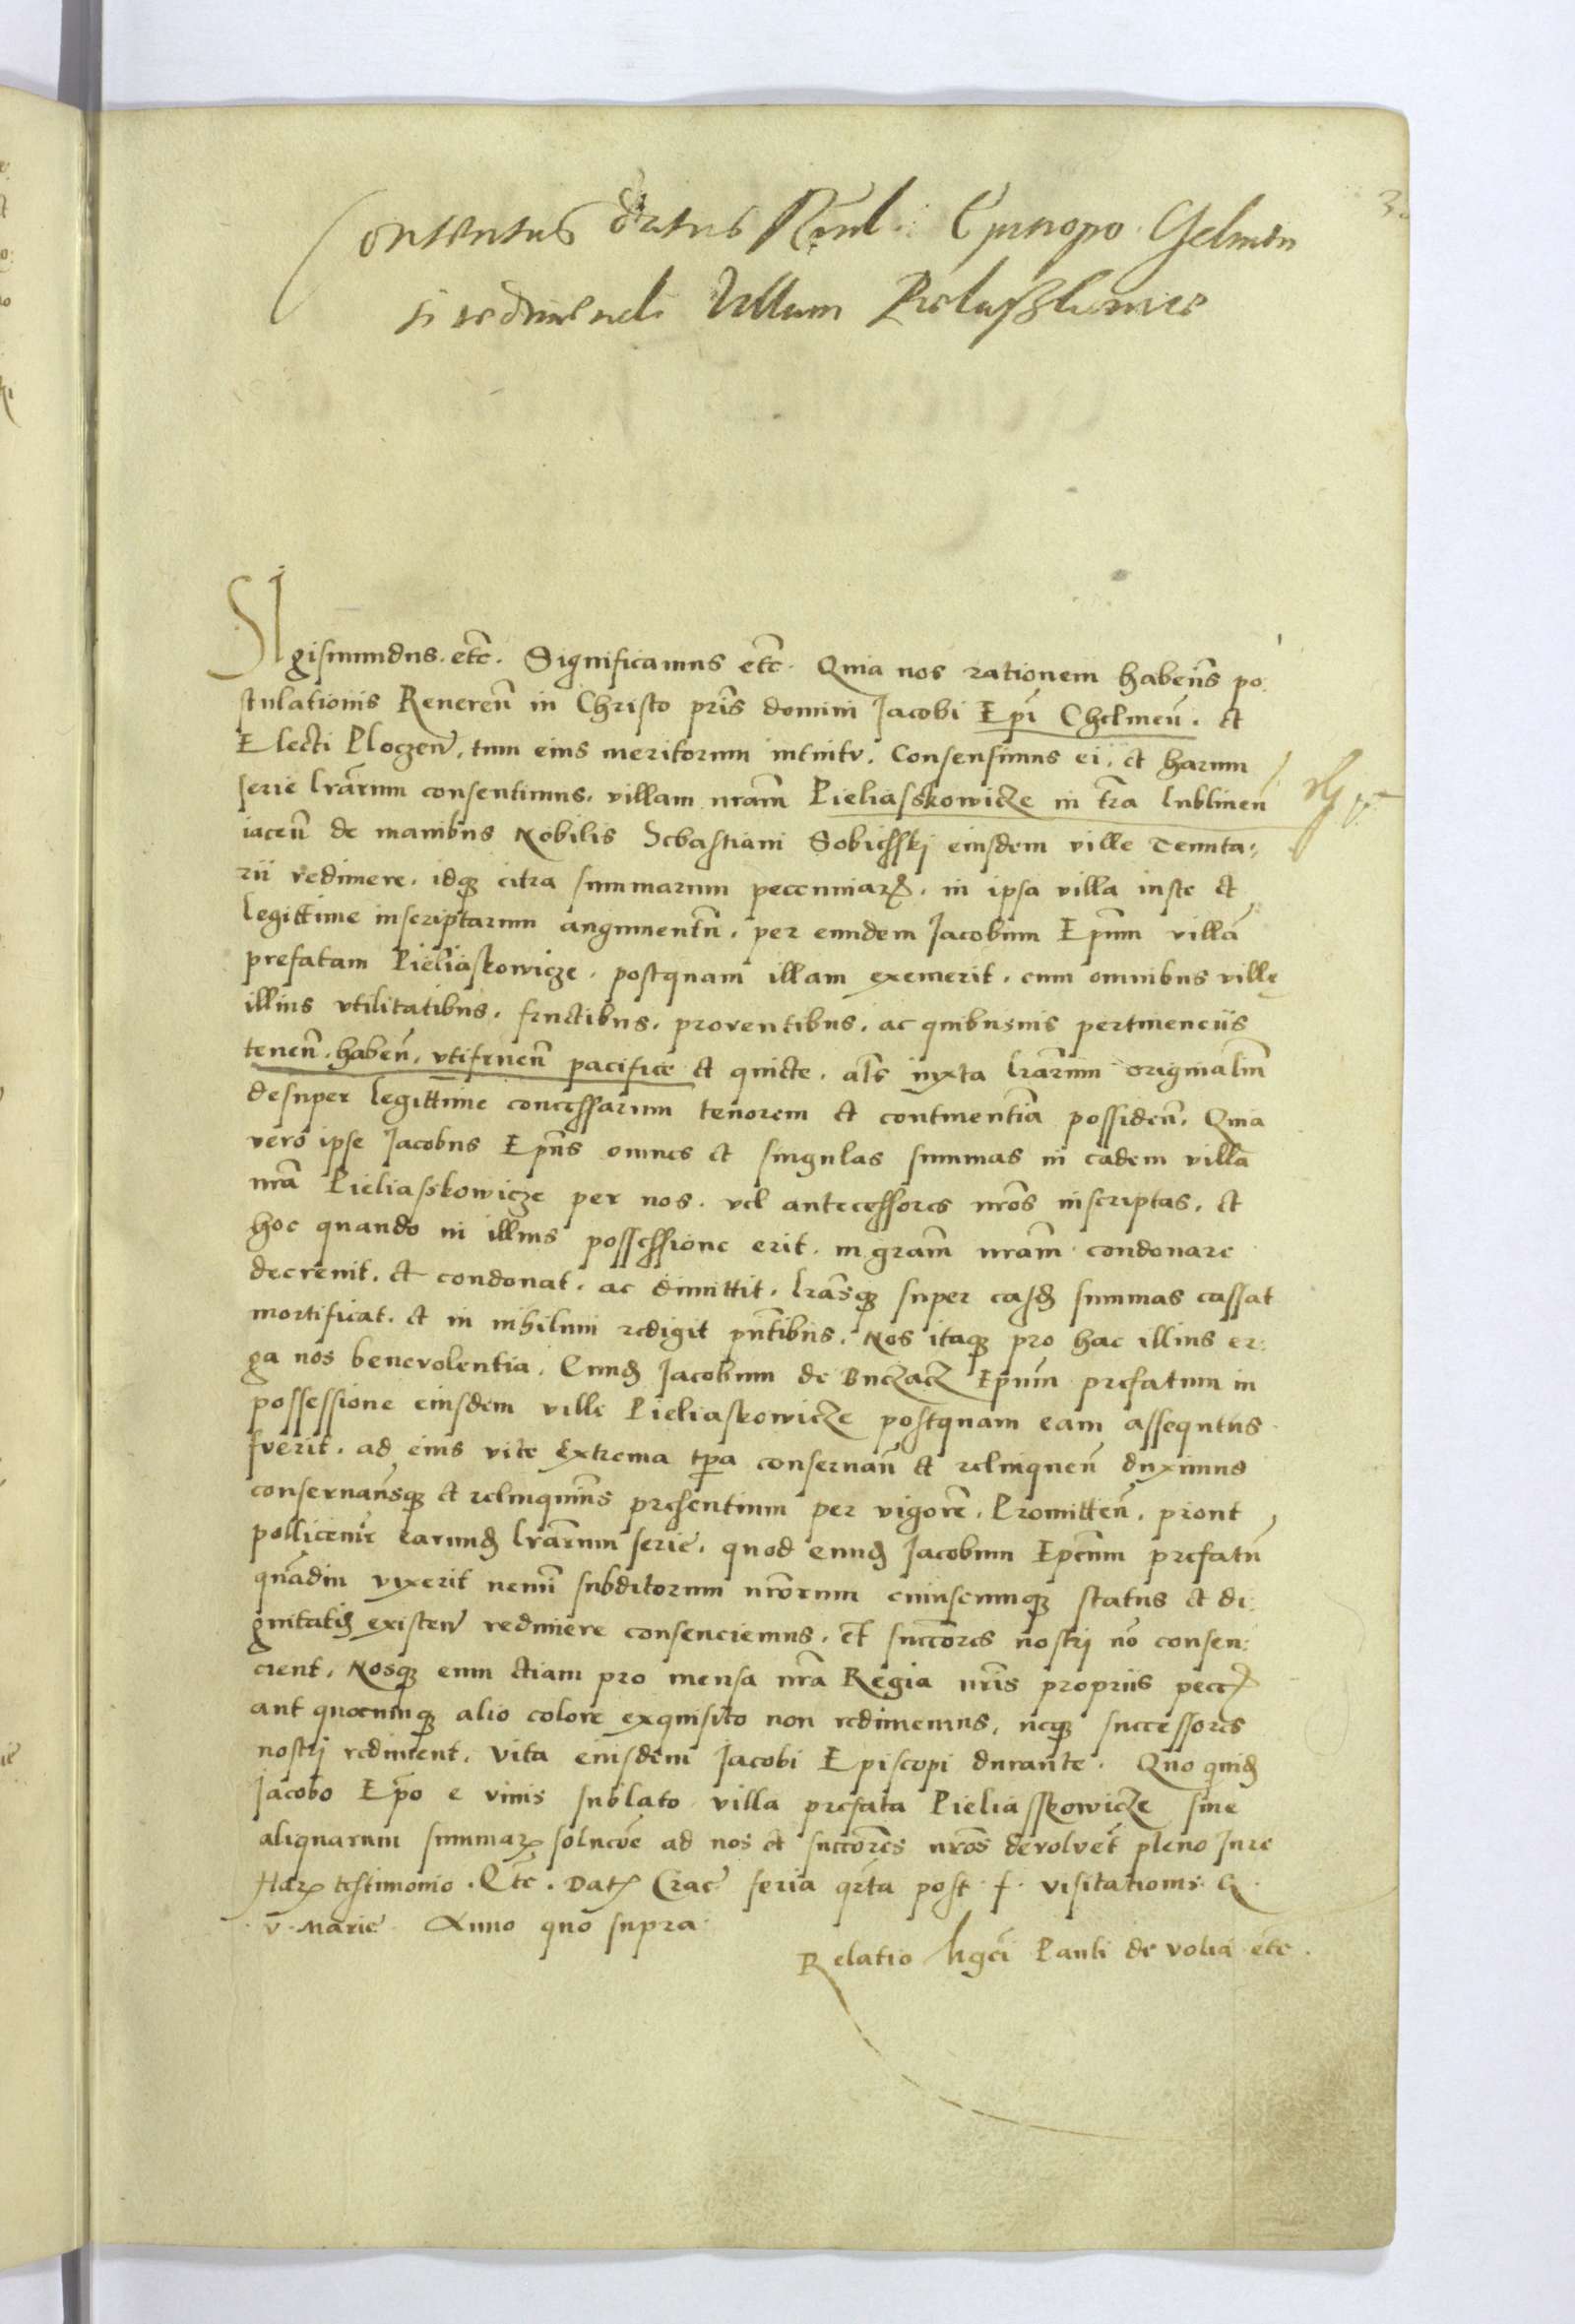 Consensus datus Rmd. Episcopo Helmen
si redimendi Villam Pieliaszkowice
SIgismundus. etc̄. Significamus etc̄. Quia nos rationem habeñs po:
stulationis Reuereñ in Christo pris̄ domini Jacobi Epi̅ Chelmeñ. et
Electi Ploczeñ, tum eius meritorum intuitv. Consensimus ei, et harum
serie lrārum consentimus. villam nrām Pieliasskowicze in tr̄a lublineñ
iaceñ de manibus Nobilis Sebastiani Sobiesskj eiusdem ville Tenuta:
rii redimere. idqꝫ citra summarum peccuniarꝫ. in ipsa villa iuste et
legittime inscriptarum augumentū. per eundem Jacobum Ep̄um villā
prefatam Pieliaskowicze. postquam illam exemerit. cum omnibus ville
illius vtilitatibus. fructibus. proventibus. ac quibusuis pertinenciis
teneñ. habeñ. vtifrueñ pacifice et quiete. als̄ iuxta lrārum originaliū
desuper legittime concessarum tenorem et continentiā possideñ. Quia
vero ipse Jacobus Ep̄us omnes et singulas summas in eadem villa
nrā Pieliaskowicze per nos. vel antecessores nrōs inscriptas. et
hoc quando in illius possessione erit. in grām nrām condonare
decreuit. et condonat. ac dimittit. lrāsqꝫ super easdꝫ summas cassat
mortificat. et in nihilum redigit pn̄tibus. Nos itaqꝫ pro hac illius er:
ga nos benevolentia. Eundꝫ Jacobum de Buczacz Epūm prefatum in
possessione eiusdem ville Pieliaskowicze postquam eam assequtus
fverit. ad eius vite extrema tp̄a conseruañ et relinqueñ duximus
conseruāusqꝫ et relinquim̄s presentium per vigorē. Promitteñ. prout
pollicem̄r earundꝫ lrārum serie. quod eundꝫ Jacobum Epc̄um prefatū
quādiu vixerit nemī subditorum nrōrum cuiuscumqꝫ status et di:
gnitatis existeñ redimere consenciemus. et succōres nostrj nō consen:
cient. Nosqꝫ eum etiam pro mensa nrā Regia nrīs propriis pecc̄ꝫ
aut quocumqꝫ alio colore exquisito non redimemus. neqꝫ successores
nostrj rediment. vita eiusdem Jacobi Episcopi durante. Quo quidꝫ
Jacobo Epō e viuis sublato villa prefata Pieliasskowicze sine
aliquarum summarꝫ solucōe ad nos et succōres nrōs devolvet pleno Jure
Harꝫ testimonio. Etc̄. Datꝫ Crac̄ feria qrta post. f. visitationis G.
v. Marie Anno quo supra.
Relatio Mgcī Pauli de volia etc.